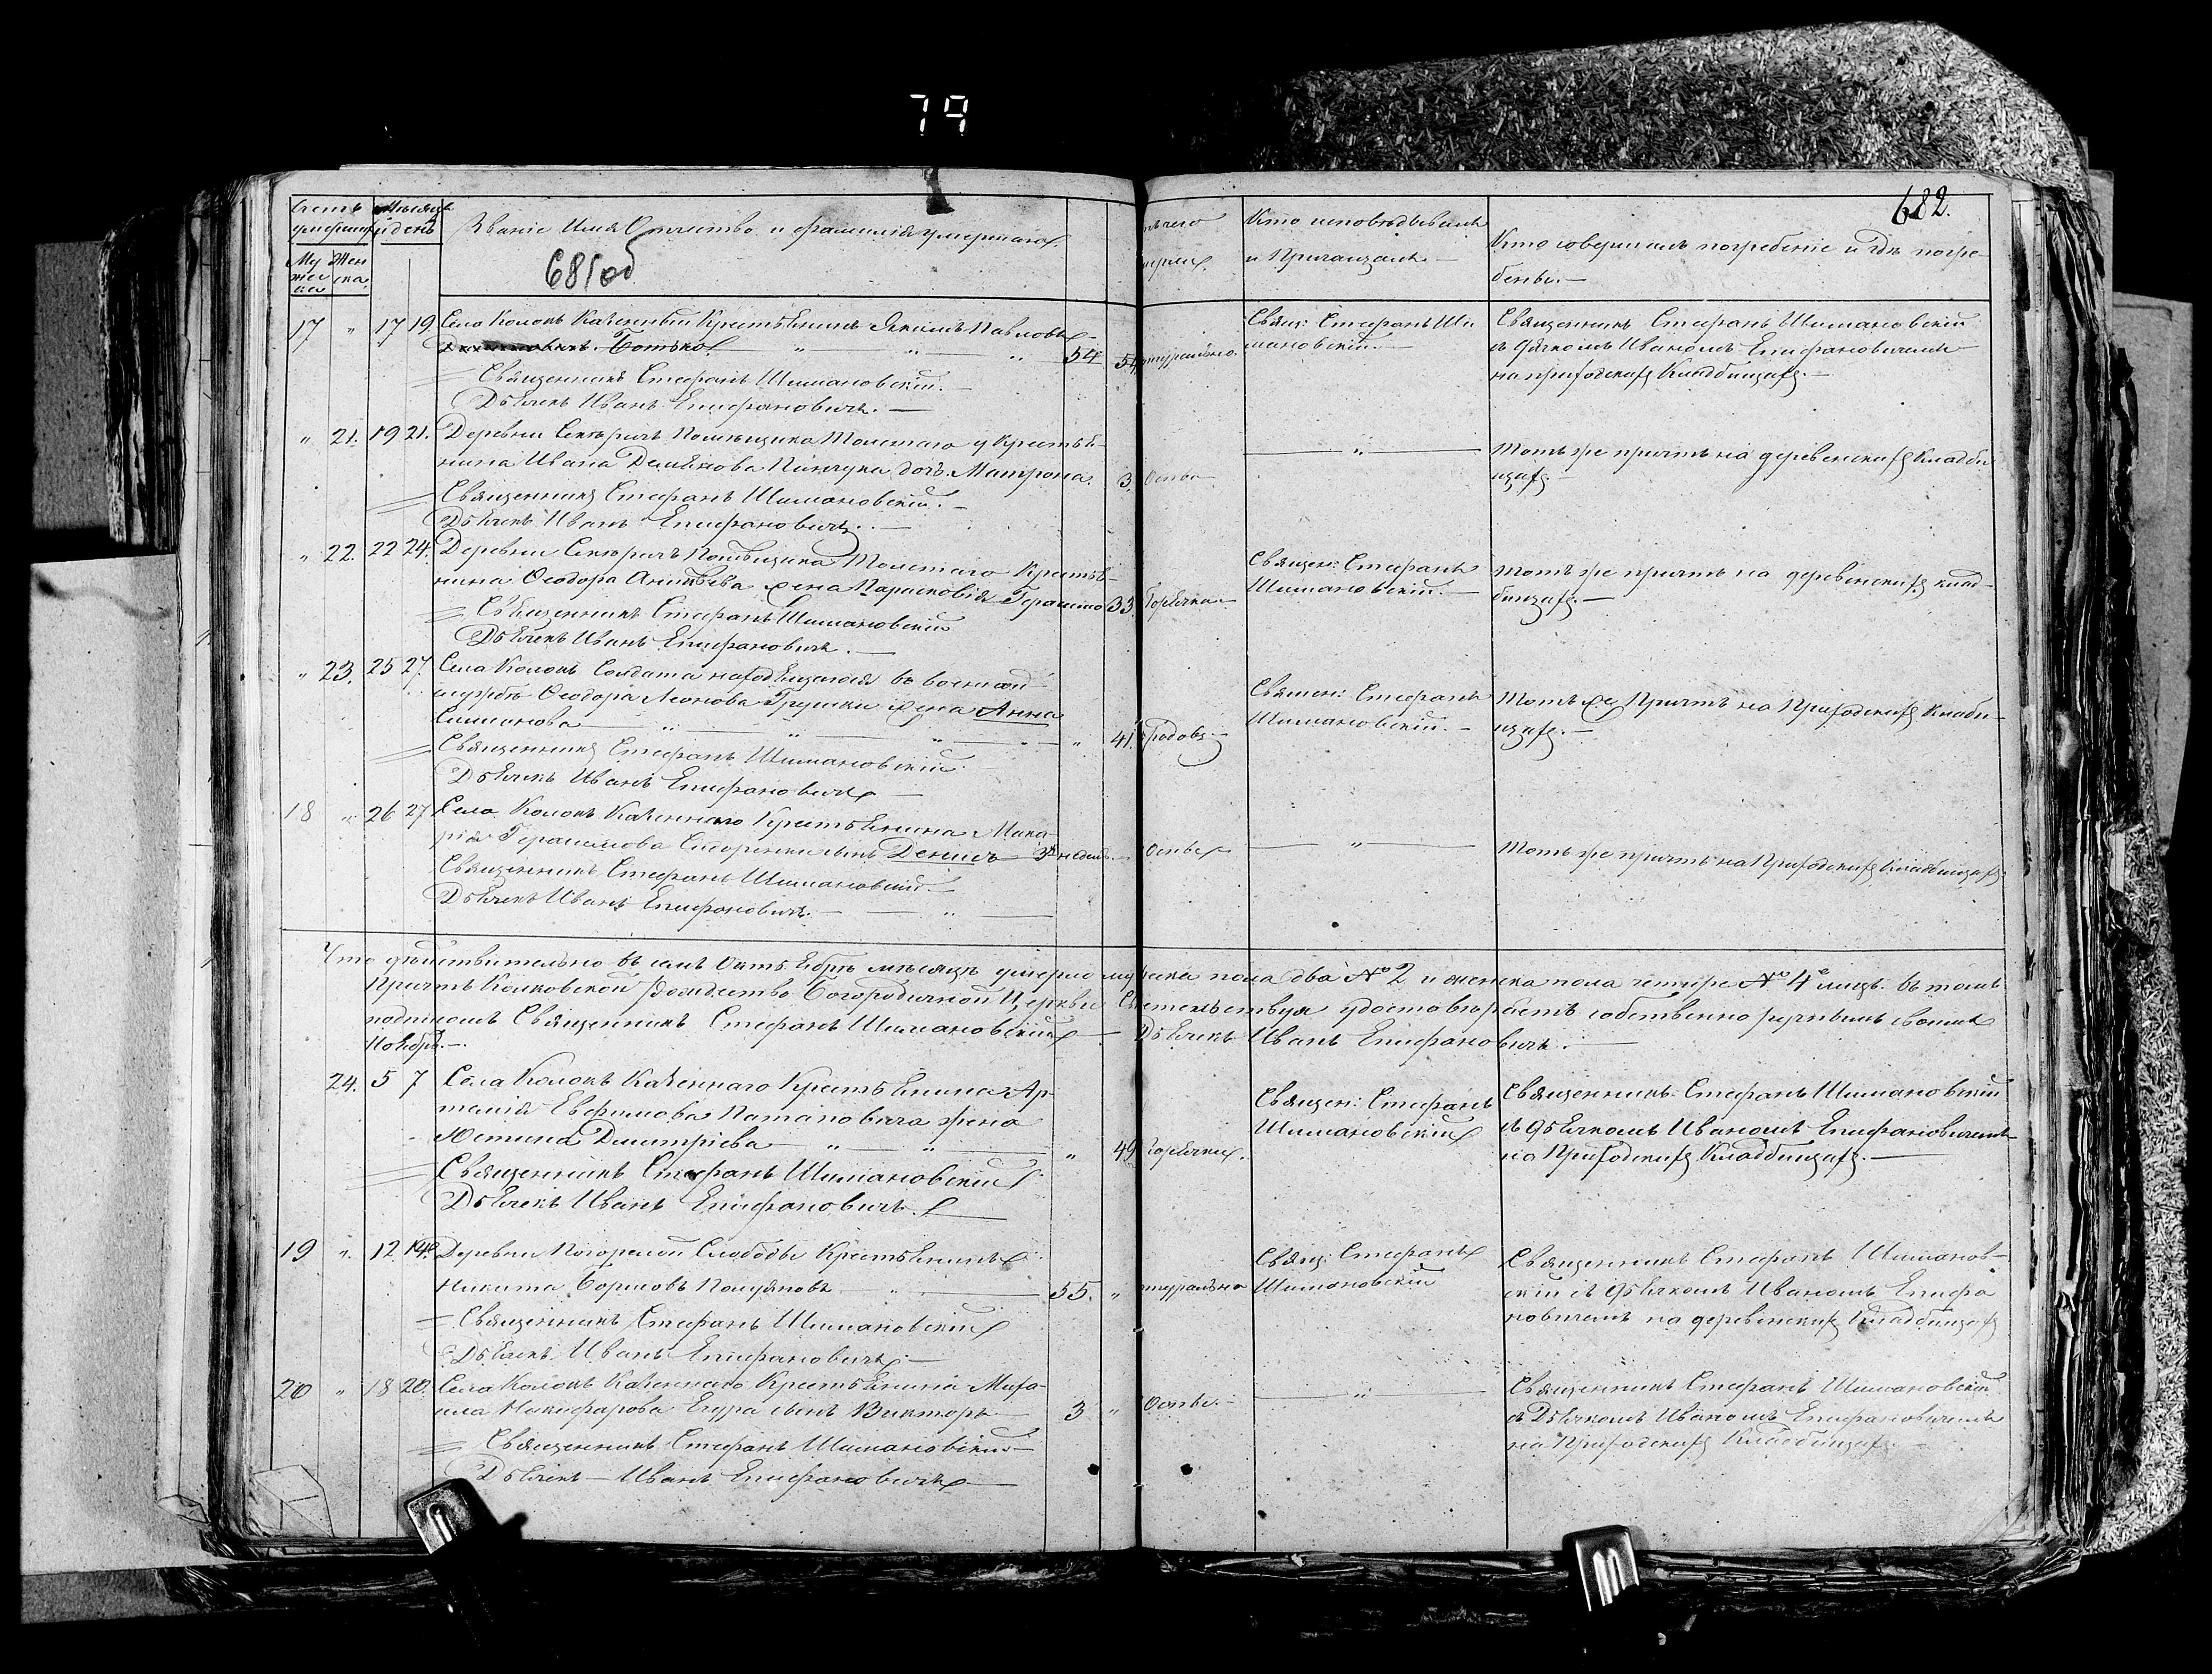 79
682.
Счетъ умершихъ
Мѣсяцъ и день
Званіе Имя Отчество и фамилія умершаго
Кто исповѣдывалъ
и Причащалъ
Кто совершалъ погребеніе и гдѣ погре-
бены.
Му Жен
жес ска
ка
681об
17 " 17 19. Села Колокъ Казенный Крестьянинъ Якимъ Павловъ
Ботъко " " " 54
Священникъ Стефанъ Шимановскій.
Дьячекъ Иванъ Епифановичъ.
Свящ: Стефанъ Ши
мановскій.
Священникъ Стефанъ Шимановскій
съ дячкомъ Иваномъ Епифановичемъ
на приходскихъ Кладбищахъ.
" 21. 19 21. Деревни Помѣщика Толстаго у Крестья-
нина Ивана Демьянова дочь Матрона. 3. Оспа
Священникъ Стефанъ Шимановскій.
Дьячекъ Иванъ Епифановичъ.
"
Тотъ же причтъ на деревенскихъ Кладби
щахъ.
" 22. 22 24. Деревни Помѣщика Толстаго Крестья-
нина Феодора жена Парасковія Герасимо 33. Горячка
Священникъ Стефанъ Шимановскій
Дьячекъ Иванъ Епифановичъ.
Священ: Стефанъ
Шимановскій.
Тотъ же причтъ на деревенскихъ клад-
бищахъ.
" 23. 25 27. Села Колокъ Солдата находящагося въ военной
службѣ Феодора Леонова Грушки жена Анна
Симонова " " " " 41.
Священникъ Стефанъ Шимановскій
Дьячекъ Иванъ Епифановичъ
Священ: Стефанъ
Шимановскій.
Тотъ же Причтъ на Приходскихъ Кладби-
щахъ.
18 " 26 27 Села Колокъ Казеннаго Крестьянина Мака-
рія Герасимова Сидоренка сынъ Денисъ недель Оспы
Священникъ Стефанъ Шимановскій
Дьячекъ Иванъ Епифановичъ. "
"
Тотъ же причтъ на Приходскихъ Кладбищахъ
Что дѣйствительно въ семъ Октябрѣ мѣсяцѣ умерло мужеска пола два №2 и женска пола четыре №4 лицъ. въ томъ
Причтъ Колковской Рождество Богородичной Церкви Свидетельствуя удостовѣряетъ собственно ручнымъ своимъ
подписомъ Священникъ Стефанъ Шимановскій Дьячекъ Иванъ Епифановичъ.
Ноябрь.
24. 5 7 Села Колокъ Казеннаго Крестьянина Ар-
темія Евфимова Потаповича жена
Юстина Дмитріева " " " 49 Горячки.
Священникъ Стефанъ Шимановскій
Дьячекъ Иванъ Епифановичъ.
Священ: Стефанъ
Шимановскій
Священникъ Стефанъ Шимановскій
съ дьячкомъ Иваномъ Епифановичемъ
на Приходскихъ Кладбищахъ.
19 " 12 14. Деревни Погорелой Слободы Крестьянинъ
Никита Борисовъ " 55. " туральна
Священникъ Стефанъ Шимановскій
Дьячекъ Иванъ Епифановичъ
Свящ: Стефанъ
Шимановскій
Священникъ Стефанъ Шиманов-
скій съ дьячкомъ Иваномъ Епифа
новичемъ на деревенскихъ Кладбищахъ
20 " 18 20. Села Колокъ Казеннаго Крестьянина Миха-
ила Никифорова сынъ Викторъ 3 " Оспы.
Священникъ Стефанъ Шимановскій
Дьячекъ Иванъ Епифановичъ
"
Священникъ Стефанъ Шимановскій
съ Дьячкомъ Иваномъ Епифановичемъ
на Приходскихъ Кладбищахъ.